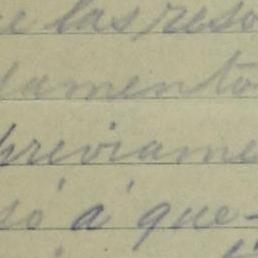 e las reso
damento
previame
só á que-